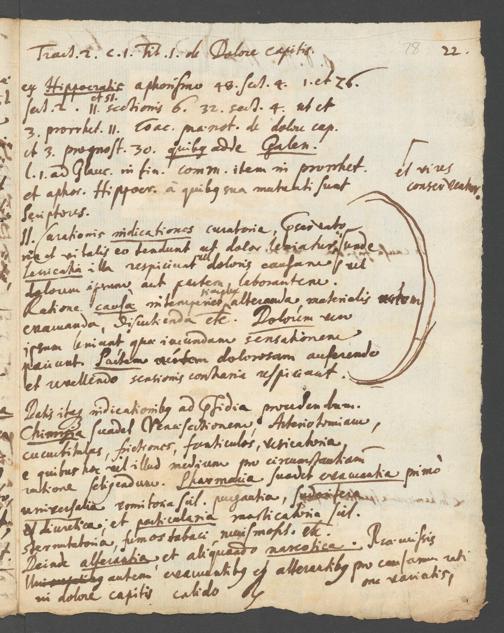 28 22.
Tract. 2. c. 1. Tit. 1. de Dolore capitis.
ex Hippocratis aphorismo 48. sect. 4. 1. et 76.
sect. 2. et 51. 11. sectionis 6. 32. sect. 4. ut et
3. prorrhet. 11. Coac. prænot. de dolore cap.
et 3. prognost. 30. quibq adde Galen.
l. 1. ad Glauc. in fin. comm. item in prorrhet.
et aphor. Hippocr. à quibq sua mutuati sunt
scriptores.
et vires
conserventur.
II. Curationis indicationes curatoria,
et vitalis eo tendunt ut dolor leniatur, unde
lenientia illa respiciunt vel doloris causam vel
dolorem ipsum, aut partem laborantem.
Ratione causæ simplex alteranda, materialis
evacuanda, discutienda etc. Dolorem
ipsum leniunt quæ iucundam sensationem
pariunt. Partem dolorosam auferendo
et revellendo contraria respiciunt.
Datis itaq indicationibq ad præsidia procedendum.
Chirurgia suadet Venæ sectionem, Arteriotomiam,
cucurbitulas, frictiones, fonticulos, vesicatoria,
e quibus hoc vel illud medicum pro circumstantiarum
ratione eligendum. Pharmacia suadet evacuantia primò
universalia vomitoria scil. purgantia, sudorifera
et diuretica; et particularia masticatoria scil.
sternutatoria, fumos tabaci etc.
Deinde alterantia et aliquando narcotica. Præmissis
autem evacuantibq et alterantibq pro causarum rati
one variatis,
in dolore capitis calido